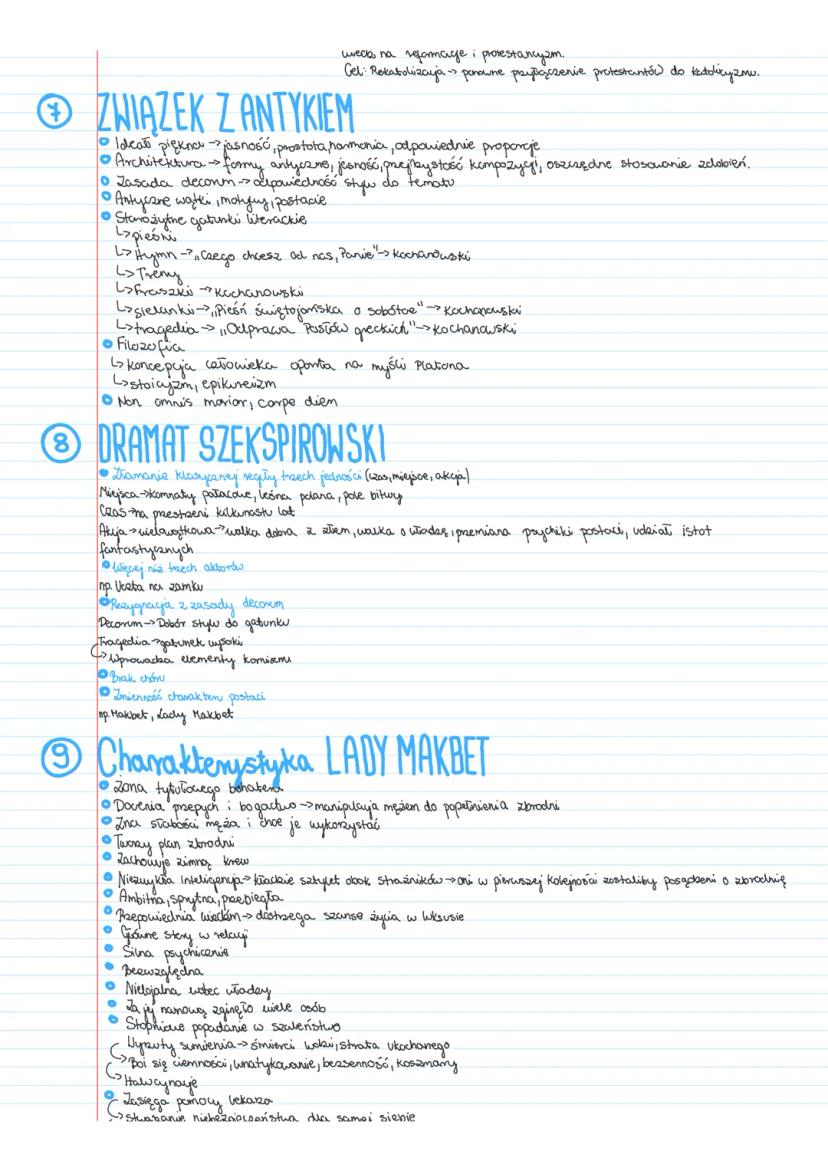 na reformację i protestantyzm.
Cel: Rekatolizacja → ponowne przyłączenie protestantów do katolicyzmu.
7 ZWIĄZEK Z ANTYKIEM
Ideał piękna → jasność, prostota, harmonia, odpowiednie proporcje
Architektura → formy antyczne, jasność, przejrzystość kompozycji, oszczędne stosowanie zdobień.
Zasada decorum → odpowiedność stylu do tematu
Antyczne wątki, motywy, postacie
Starożytne gatunki literackie
↳ pieśni
↳ Hymn → „Czego chcesz od nas, Panie" → Kochanowski
↳ Treny
↳ Fraszki → Kochanowski
↳ sielanki → „Pieśń świętojańska o sobótce" → Kochanowski
↳ tragedia → „Odprawa Posłów greckich" → Kochanowski
Filozofia
↳ koncepcja człowieka oparta na myśli Platona
↳ stoicyzm, epikureizm
Non omnis moriar, carpe diem
8 DRAMAT SZEKSPIROWSKI
Złamanie klasycznej reguły trzech jedności (czas, miejsce, akcja)
Miejsca → komnaty pałacowe, leśna polana, pole bitwy
Czas → na przestrzeni kilkunastu lat
Akcja → wielowątkowa → walka dobra z złem, walka o władzę, przemiana psychiki postaci, udział istot
fantastycznych
Więcej niż trzech aktorów
np. Uczta na zamku
Rezygnacja z zasady decorum
Decorum → Dobór stylu do gatunku
Tragedia → gatunek wysoki
↳ Wprowadza elementy komizmu
Brak chóru
Zmienność charakteru postaci
np. Makbet, Lady Makbet
9 Charakterystyka LADY MAKBET
Żona tytułowego bohatera
Docenia przepych i bogactwo → manipulacja mężem do popełnienia zbrodni
Zna słabości męża i chce je wykorzystać
Tworzy plan zbrodni
Zachowuje zimną krew
Niezwykła inteligencja → kładzie sztylet obok strażników → oni w pierwszej kolejności zostaliby posądzeni o zbrodnię
Ambitna, sprytna, przebiegła
Przepowiednia wiedźm → dostrzega szansę życia w luksusie
Główne stery w relacji
Silna psychicznie
Bezwzględna
Nielojalna wobec władcy
Za jej namową zginęło wiele osób
Stopniowe popadanie w szaleństwo
Wyrzuty sumienia → śmierci ludzi, strata ukochanego
↳ Boi się ciemności, lunatykowanie, bezsenność, koszmary
↳ Halucynacje
Zasięga pomocy lekarza
↳ Stwarzanie niebezpieczeństwa dla samej siebie